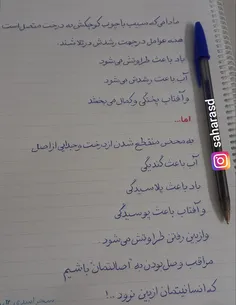 مادامی که سیب با چوب کوچکش به درخت متصل است
همه عوامل در جهت رشدش در تلاشند
باد باعث طراوتش می‌شود
آب باعث رشدش می‌شود
و آفتاب پختگی و کمال می‌بخشد
اما...
به محض منقطع شدن از درخت و جدایی از اصل
آب باعث گندیدگی
باد باعث پلاسیدگی
و آفتاب باعث پوسیدگی
و از بین رفتن طراوتش می‌شود
مراقب وصل بودن به "اصالتمان" باشیم
که انسانیتمان از بین نرود...!
saharasd